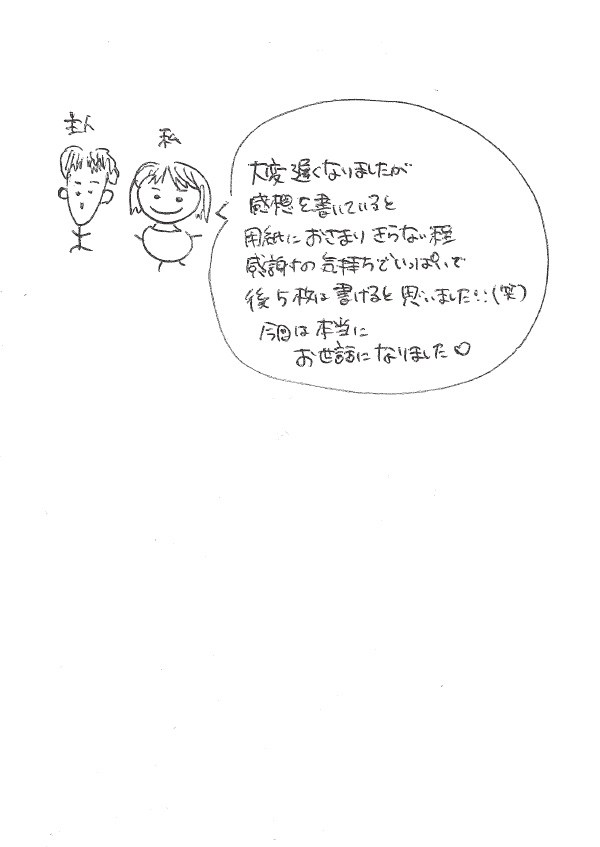 主人
私
大変遅くなりましたが
感想を書いていると
用紙におさまりきらない程
感謝の気持ちでいっぱいで
後5枚は書けると思いました‥(笑)
今回は本当に
お世話になりました♡